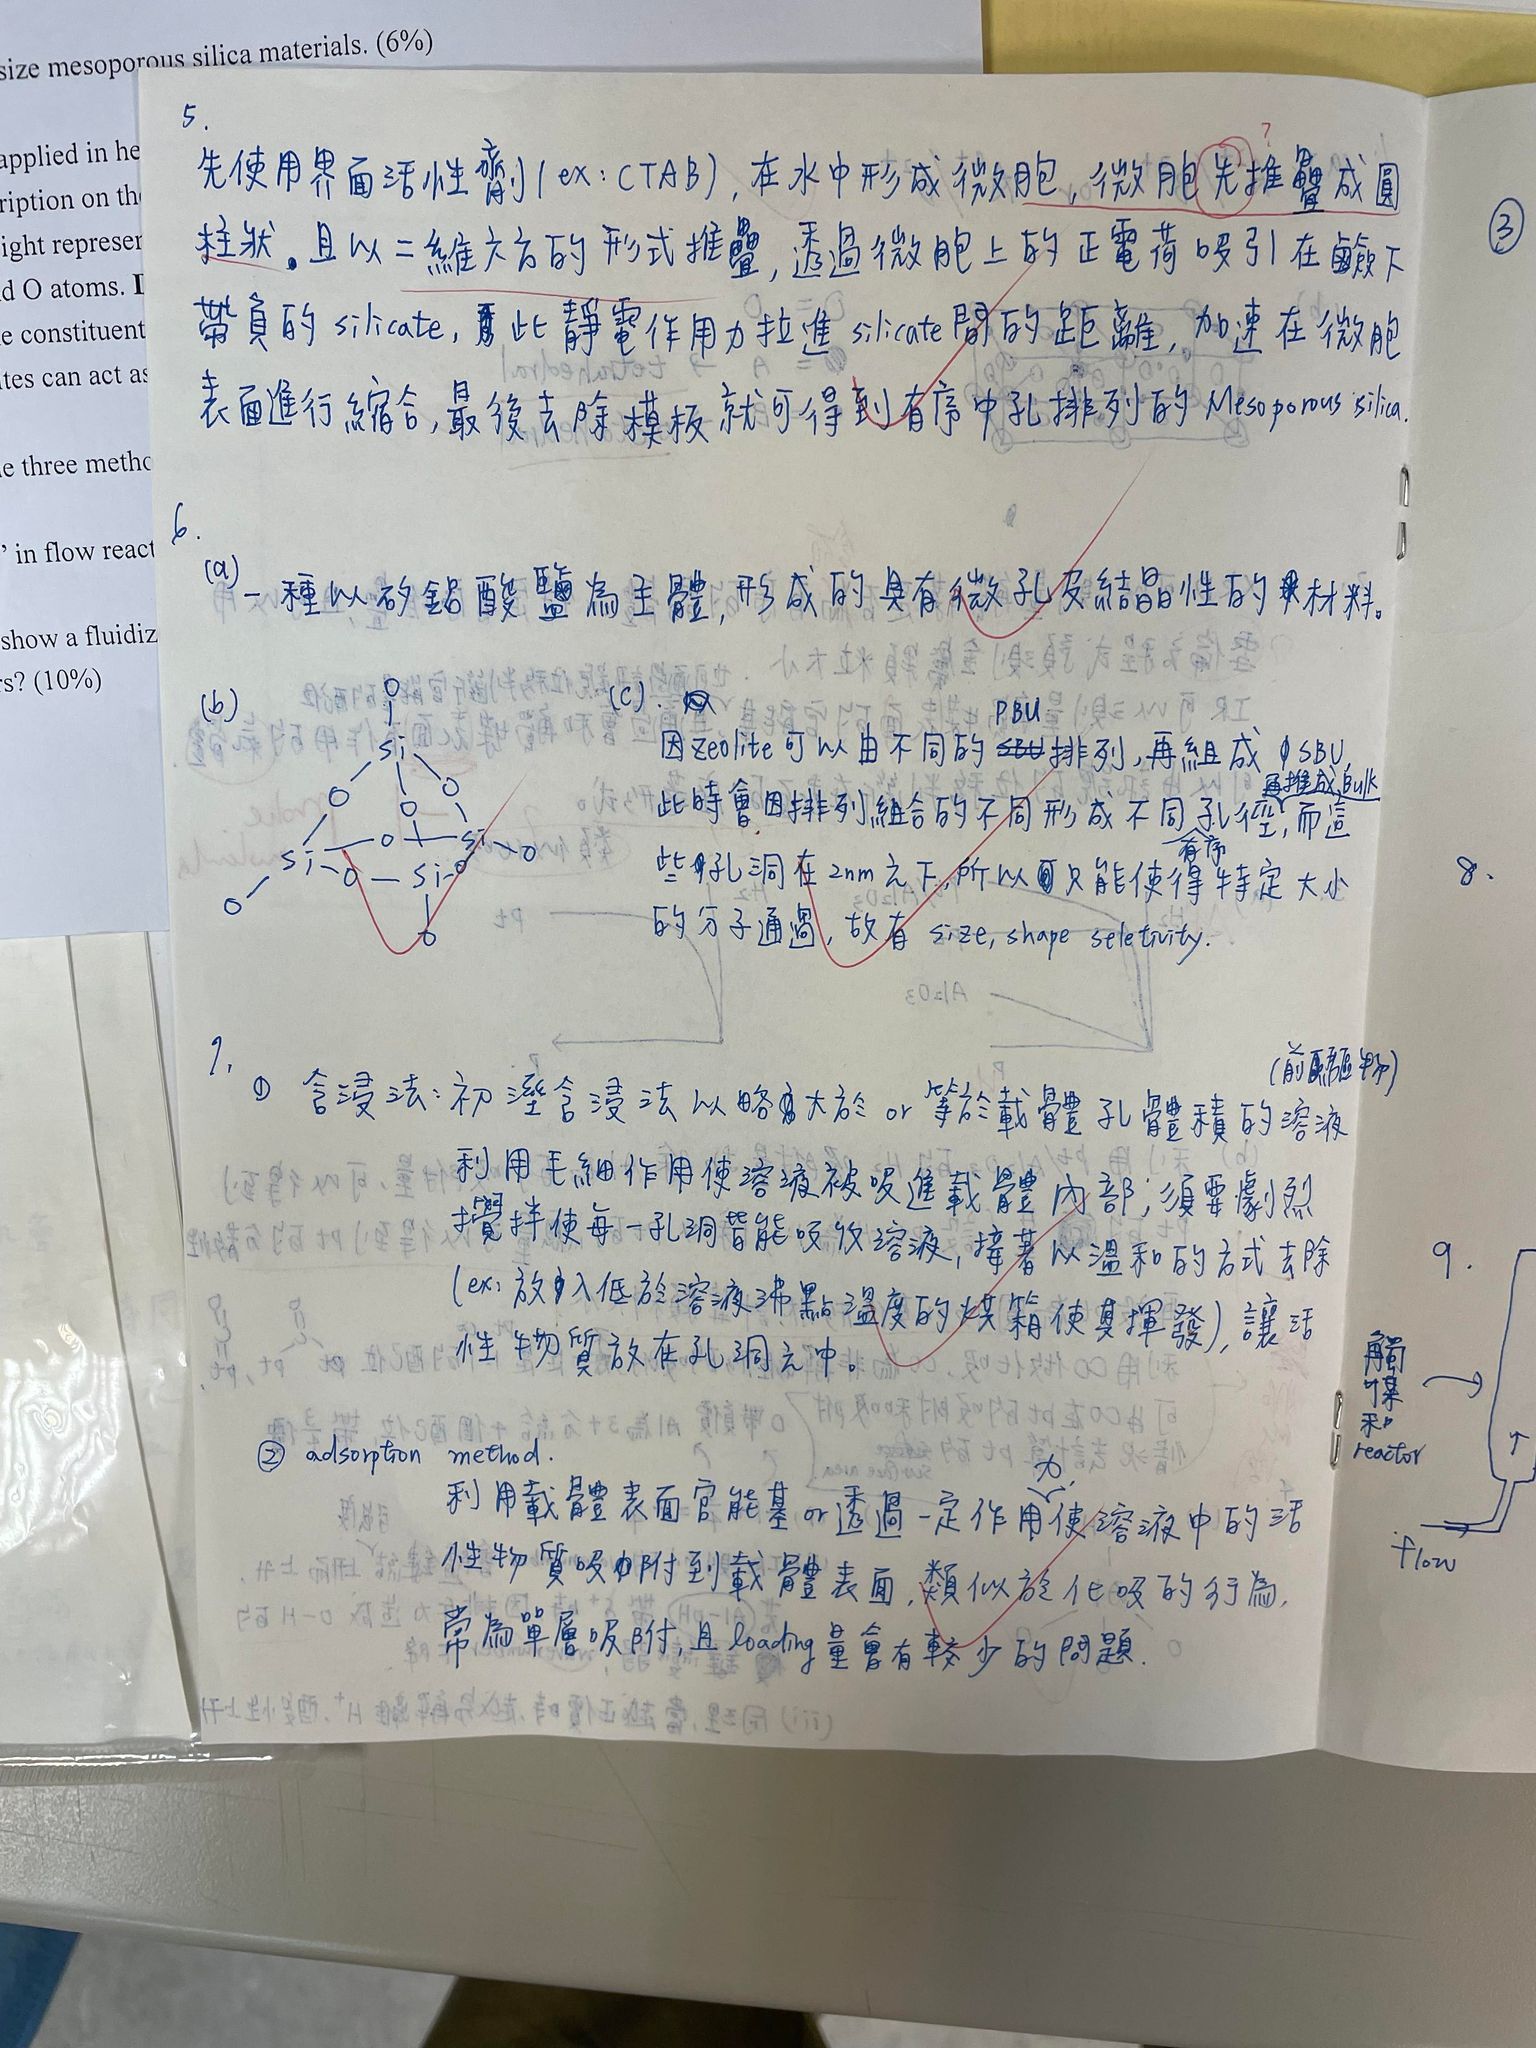 size mesoporous silica materials. (6%)
applied in he
ription on the
ight represen
d O atoms.
e constituent
tes can act as
e three metho
’ in flow react
show a fluidiz
rs? (10%)
5.
?
先使用界面活性劑(ex:CTAB),在水中形成微胞,微胞先堆疊成圓
柱狀。且以二維六方的形式堆疊,透過微胞上的正電荷吸引在鹼下
帶負的silicate,此靜電作用力拉進silicate間的距離,加速在微胞
表面進行縮合,最後去除模板就可得到有序中孔排列的Mesoporous silica.
6.
(a)一種以矽鋁酸鹽為主體,形成的具有微孔及結晶性的材料。
(b)
O
Si
O O O
Si O Si O
O Si O
O
O
(c).
PBU
因zeolite可以由不同的SBU排列,再組成SBU,
再堆成Bulk
此時會因排列組合的不同形成不同孔徑,而這
有序
些孔洞在2nm之下,所以只能使得特定大小
的分子通過,故有size, shape seletivity.
7.
(前驅物)
① 含浸法:初溼含浸法以略大於or等於載體孔體積的溶液
利用毛細作用使溶液被吸進載體內部;須要劇烈
攪拌使每一孔洞皆能吸收溶液,接著以溫和的方式去除
(ex:放入低於溶液沸點溫度的烘箱使其揮發),讓活
性物質放在孔洞之中。
② adsorption method.
力
利用載體表面官能基or透過一定作用使溶液中的活
性物質吸附到載體表面,類似於化吸的行為,
常為單層吸附,且loading量會有較少的問題.
③
8.
9.
觸
媒
和
reactor
flow